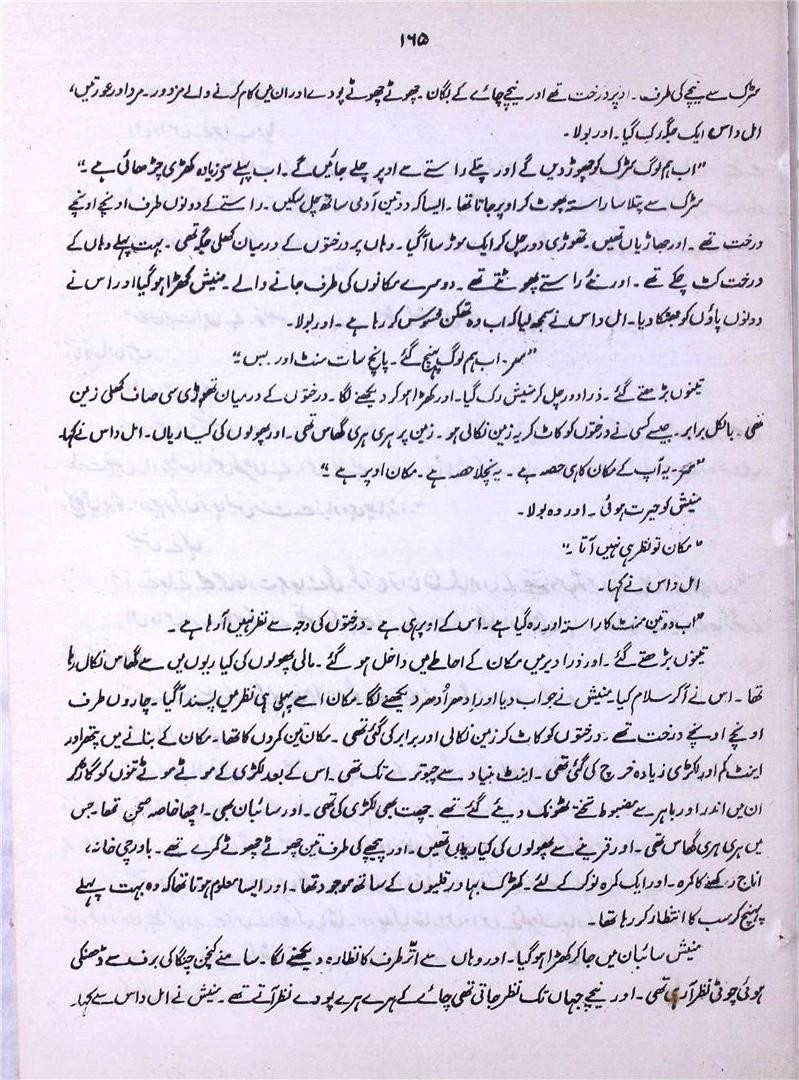 ۱۶۵
سڑک سے نیچے کی طرف۔ اوپر درخت تھے اور نیچے چائے کے بگان۔ چھوٹے چھوٹے پودے اور ان میں کام کرنے والے مزدور۔ مرد اور عورتیں،
امل داس ایک جگہ رک گیا۔ اور بولا۔
"اب ہم لوگ سڑک کو چھوڑ دیں گے اور پتلے راستے سے اوپر چلے جائیں گے۔ اب پہلے سے زیادہ کھڑی چڑھائی ہے۔"
سڑک سے پتلا سا راستہ پھوٹ کر اوپر جاتا تھا۔ ایسا کہ دو تین آدمی ساتھ چل سکیں۔ راستے کے دونوں طرف اونچے اونچے
درخت تھے۔ اور جھاڑیاں تھیں۔ تھوڑی دور چل کر ایک موڑ سا آگیا۔ وہاں پر درختوں کے درمیان کھلی جگہ تھی۔ بہت پہلے وہاں کے
درخت کٹ چکے تھے۔ اور نئے راستے پھوٹتے تھے۔ دوسرے مکانوں کی طرف جانے والے۔ منیش کھڑا ہو گیا اور اس نے
دونوں پاؤں کو جھٹکا دیا۔ امل داس نے سمجھ لیا کہ اب وہ تھکن محسوس کر رہا ہے۔ اور بولا۔
"سر۔ اب ہم لوگ پہنچ گئے۔ پانچ سات منٹ اور بس"
تینوں بڑھتے گئے۔ ذرا دور چل کر منیش رک گیا۔ اور کھڑا ہو کر دیکھنے لگا۔ درختوں کے درمیان تھوڑی سی صاف کھلی زمین
تھی۔ بالکل برابر۔ جیسے کسی نے درختوں کو کاٹ کر یہ زمین نکالی ہو۔ زمین پر ہری ہری گھاس تھی۔ اور پھولوں کی کیاریاں۔ امل داس نے کہا۔
"سر۔ یہ آپ کے مکان کا ہی حصہ ہے۔ یہ نچلا حصہ ہے۔ مکان اوپر ہے۔"
منیش کو حیرت ہوئی۔ اور وہ بولا۔
"مکان تو نظر ہی نہیں آتا۔"
امل داس نے کہا۔
"اب دو تین منٹ کا راستہ اور رہ گیا ہے۔ اس کے اوپر ہی ہے۔ درختوں کی وجہ سے نظر نہیں آ رہا ہے۔
تینوں بڑھتے گئے۔ اور ذرا دیر میں مکان کے احاطے میں داخل ہو گئے۔ مالی پھولوں کی کیاریوں میں سے گھاس نکال رہا
تھا۔ اس نے آکر سلام کیا۔ منیش نے جواب دیا اور ادھر اُدھر دیکھنے لگا۔ مکان اسے پہلی ہی نظر میں پسند آگیا۔ چاروں طرف
اونچے اونچے درخت تھے۔ درختوں کو کاٹ کر زمین نکالی اور برابر کی گئی تھی۔ مکان تین کمروں کا تھا۔ مکان کے بنانے میں پتھر اور
اینٹ کم اور لکڑی زیادہ خرچ کی گئی تھی۔ اینٹ بنیاد سے چبوترے تک تھی۔ اس کے بعد لکڑی کے موٹے موٹے تنوں کو گاڑ کر
ان میں اندر اور باہر سے مضبوط تختے ٹھونک دیئے گئے تھے۔ چھت بھی لکڑی کی تھی۔ اور سائبان بھی۔ اچھا خاصہ صحن تھا۔ جس
میں ہری ہری گھاس تھی۔ اور قرینے سے پھولوں کی کیاریاں تھیں۔ اور پیچھے کی طرف تین چھوٹے چھوٹے کمرے تھے۔ باورچی خانہ،
اناج رکھنے کا کمرہ۔ اور ایک کمرہ نوکر کے لئے۔ کھڑک بہادر قلیوں کے ساتھ موجود تھا۔ اور ایسا معلوم ہوتا تھا کہ وہ بہت پہلے
پہنچ کر سب کا انتظار کر رہا تھا۔
منیش سائبان میں جا کر کھڑا ہو گیا۔ اور وہاں سے اتر طرف کا نظارہ دیکھنے لگا۔ سامنے کنچن چنگا کی برف سے ڈھنکی
ہوئی چوٹی نظر آ رہی تھی۔ اور نیچے جہاں تک نظر جاتی تھی چائے کے ہرے ہرے پودے نظر آتے تھے۔ منیش نے امل داس سے کہا۔